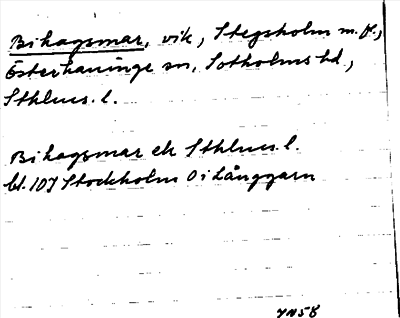 Bihagsmar, vik, Stegsholm m.fl.,
Österhaninge sn, Sotholms hd,
Sthlms. l.
Bihagsmar ek Sthlms l.
bl. 107 Stockholm O i Långgarn
YN58